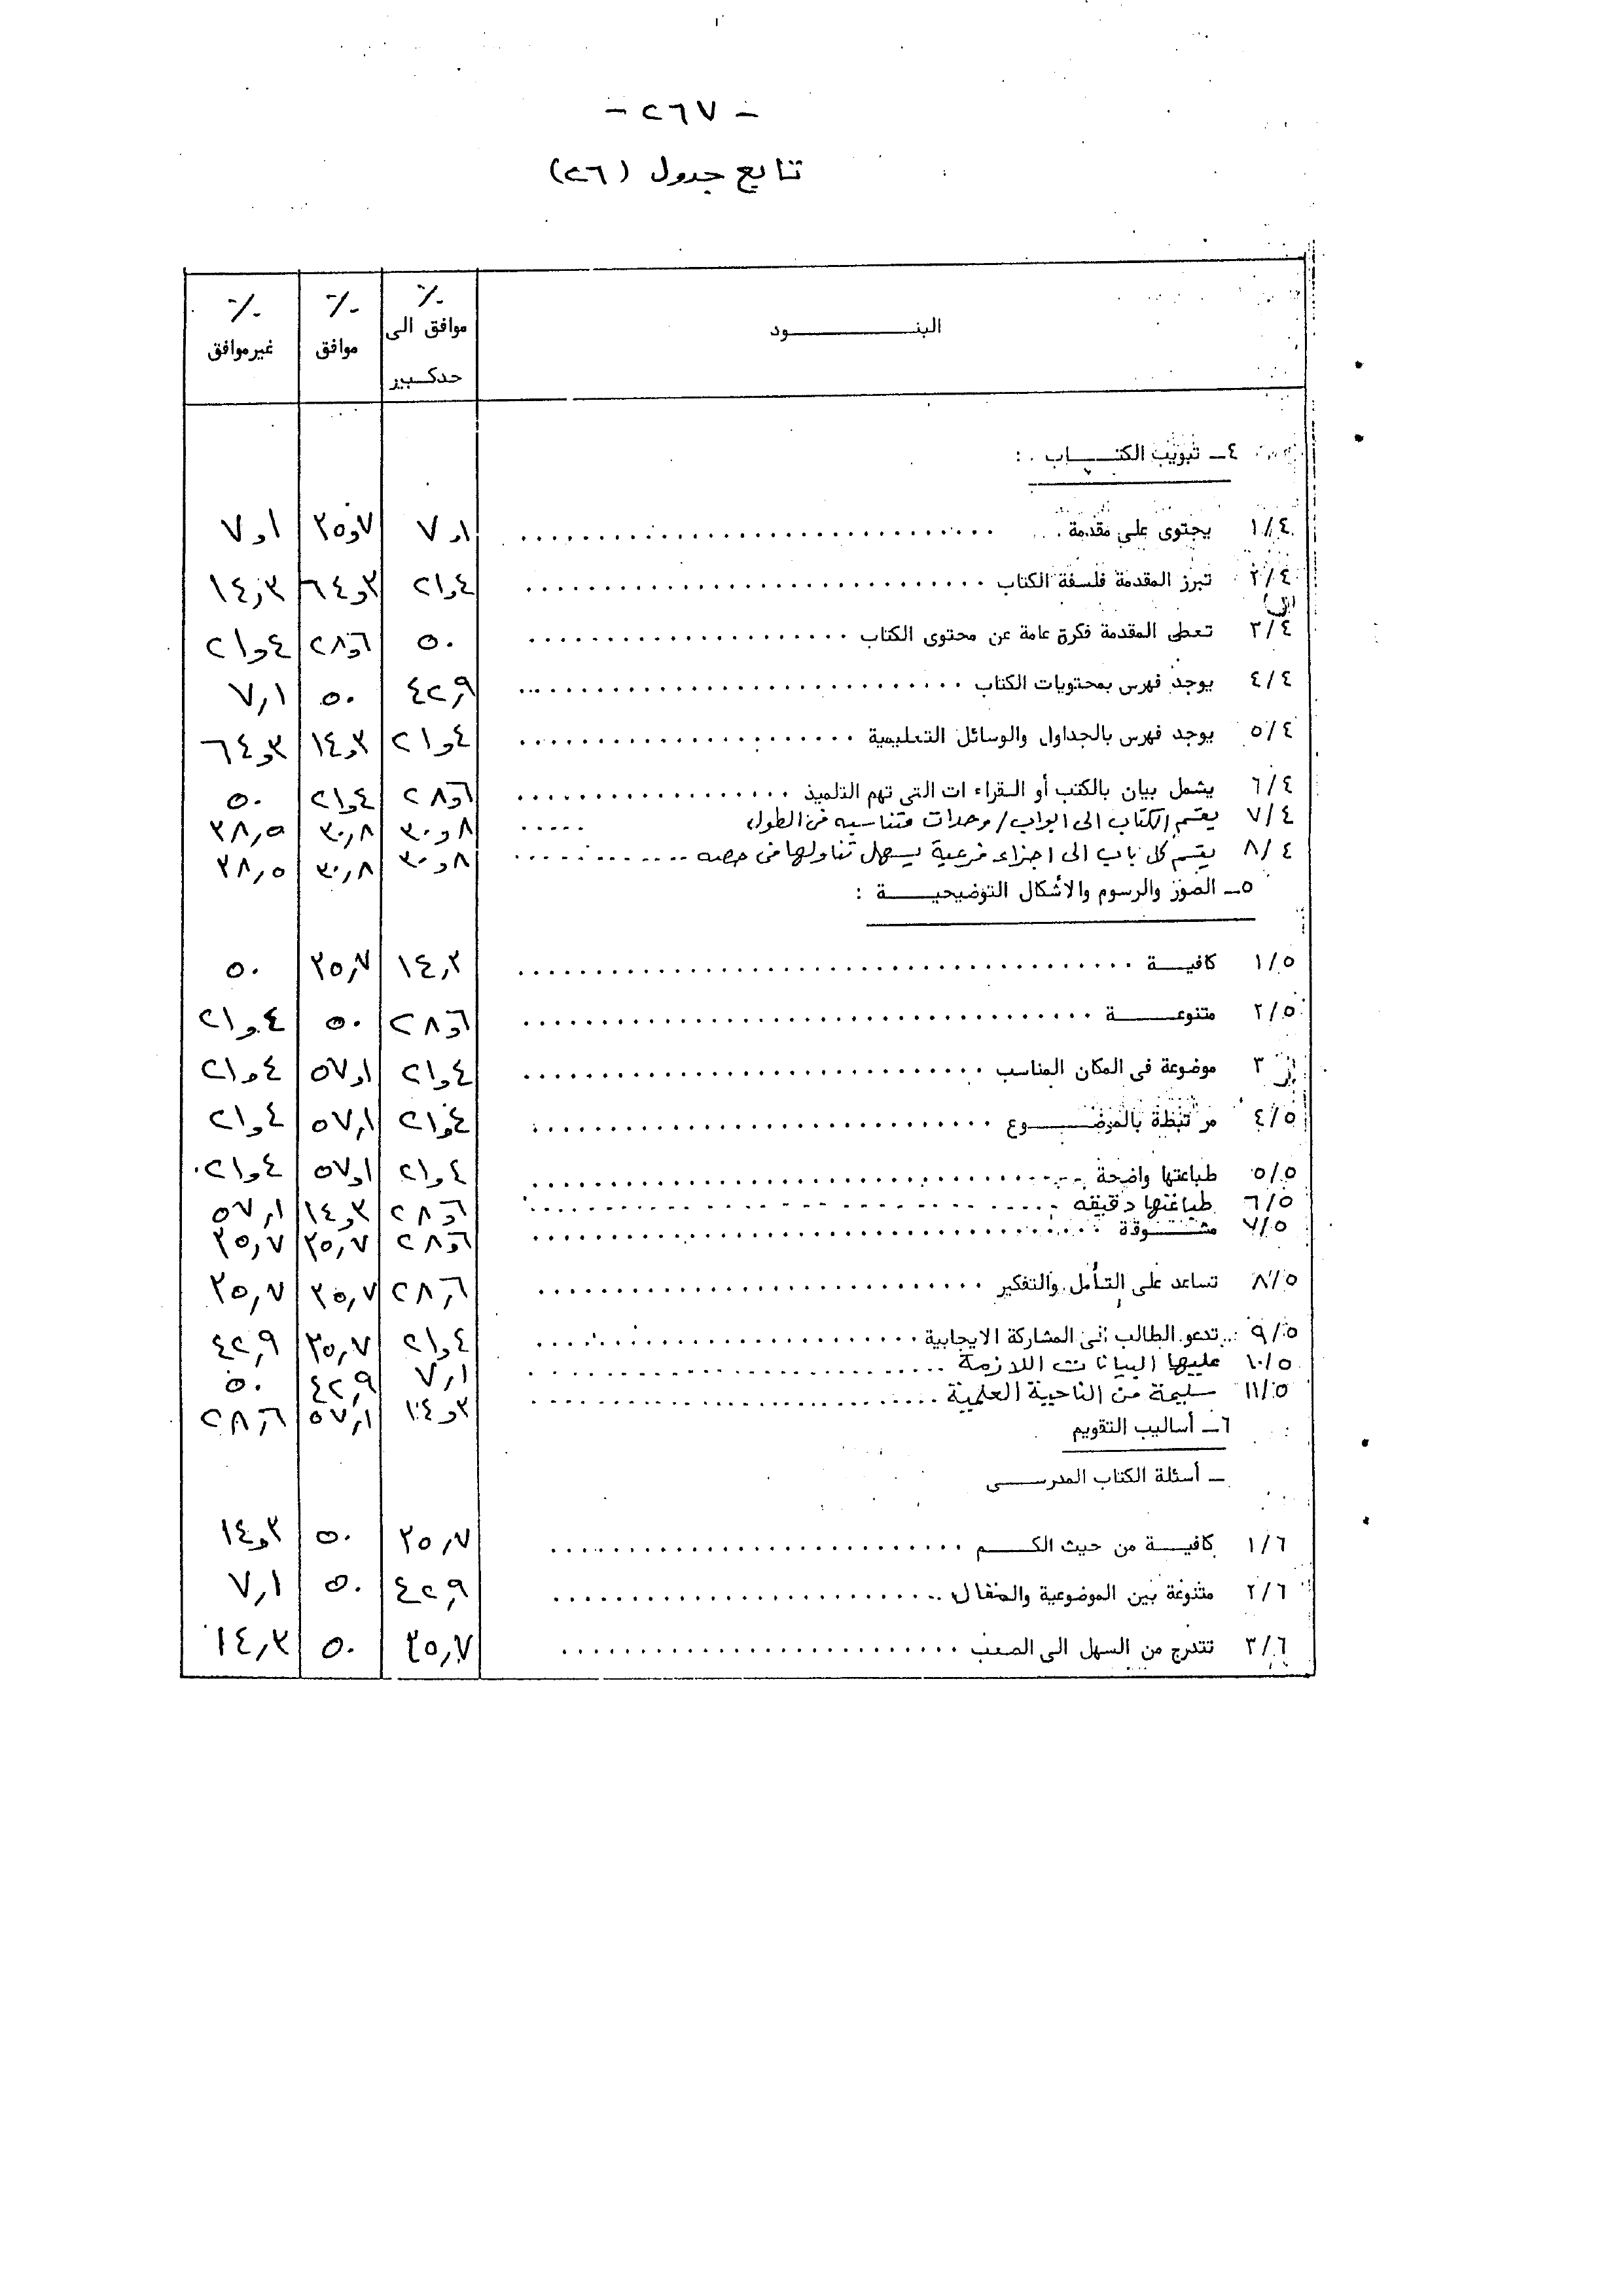 - ٢٦٧ -
تابع جدول (٢٦)
البنــــــــود ٪ موافق الى حدكبير ٪ موافق ٪ غيرموافق
٤ــ تبويب الكتــــاب :
١/٤ يحتوى على مقدمة ٧و١ ٣٥و٧ ٧و١
٢/٤ تبرز المقدمة فلسفة الكتاب ٢١و٤ ٦٤و٣ ١٤,٣
٣/٤ تعطى المقدمة فكرة عامة عن محتوى الكتاب ٥٠ ٢٨و٦ ٢١و٤
٤/٤ يوجد فهرس بمحتويات الكتاب ٤٢,٩ ٥٠ ٧,١
٥/٤ يوجد فهرس بالجداول والوسائل التعليمية ٢١و٤ ١٤و٣ ٦٤و٣
٦/٤ يشمل بيان بالكتب أو القراءات التى تهم التلميذ ٢٨و٦ ٢١و٤ ٥٠
٧/٤ يقسم الكتاب الى ابواب/وحدات متناسبه فى الطول ٣٠و٨ ٣٠,٨ ٣٨,٥
٨/٤ يقسم كل باب الى اجزاء فرعية يسهل تناولها فى حصه ٣٠و٨ ٣٠,٨ ٣٨,٥
٥ــ الصور والرسوم والأشكال التوضيحيــــة :
١/٥ كافيــــة ١٤,٣ ٣٥,٧ ٥٠
٢/٥ متنوعــــة ٢٨و٦ ٥٠ ٢١و٤
٣ موضوعة فى المكان المناسب ٢١و٤ ٥٧و١ ٢١و٤
٤/٥ مرتبطة بالموضــــوع ٢١و٤ ٥٧,١ ٢١و٤
٥/٥ طباعتها واضحة ٢١و٤ ٥٧و١ ٢١و٤
٦/٥ طباعتها دقيقه ٢٨و٦ ١٤و٣ ٥٧,١
٧/٥ مشــــوقة ٢٨و٦ ٣٥,٧ ٣٥,٧
٨/٥ تساعد على التأمل والتفكير ٢٨,٦ ٣٥,٧ ٣٥,٧
٩/٥ تدعو الطالب الى المشاركة الايجابية ٢١و٤ ٣٥,٧ ٤٢,٩
١٠/٥ عليها البيانات اللازمة ٧,١ ٤٢,٩ ٥٠
١١/٥ سليمة من الناحية العلمية ١٤و٣ ٥٧,١ ٢٨,٦
٦ــ أساليب التقويم
ــ أسئلة الكتاب المدرســــى
١/٦ كافيــــة من حيث الكــــم ٣٥,٧ ٥٠ ١٤و٣
٢/٦ متنوعة بين الموضوعية والمقال ٤٢,٩ ٥٠ ٧,١
٣/٦ تتدرج من السهل الى الصعب ٣٥,٧ ٥٠ ١٤,٣